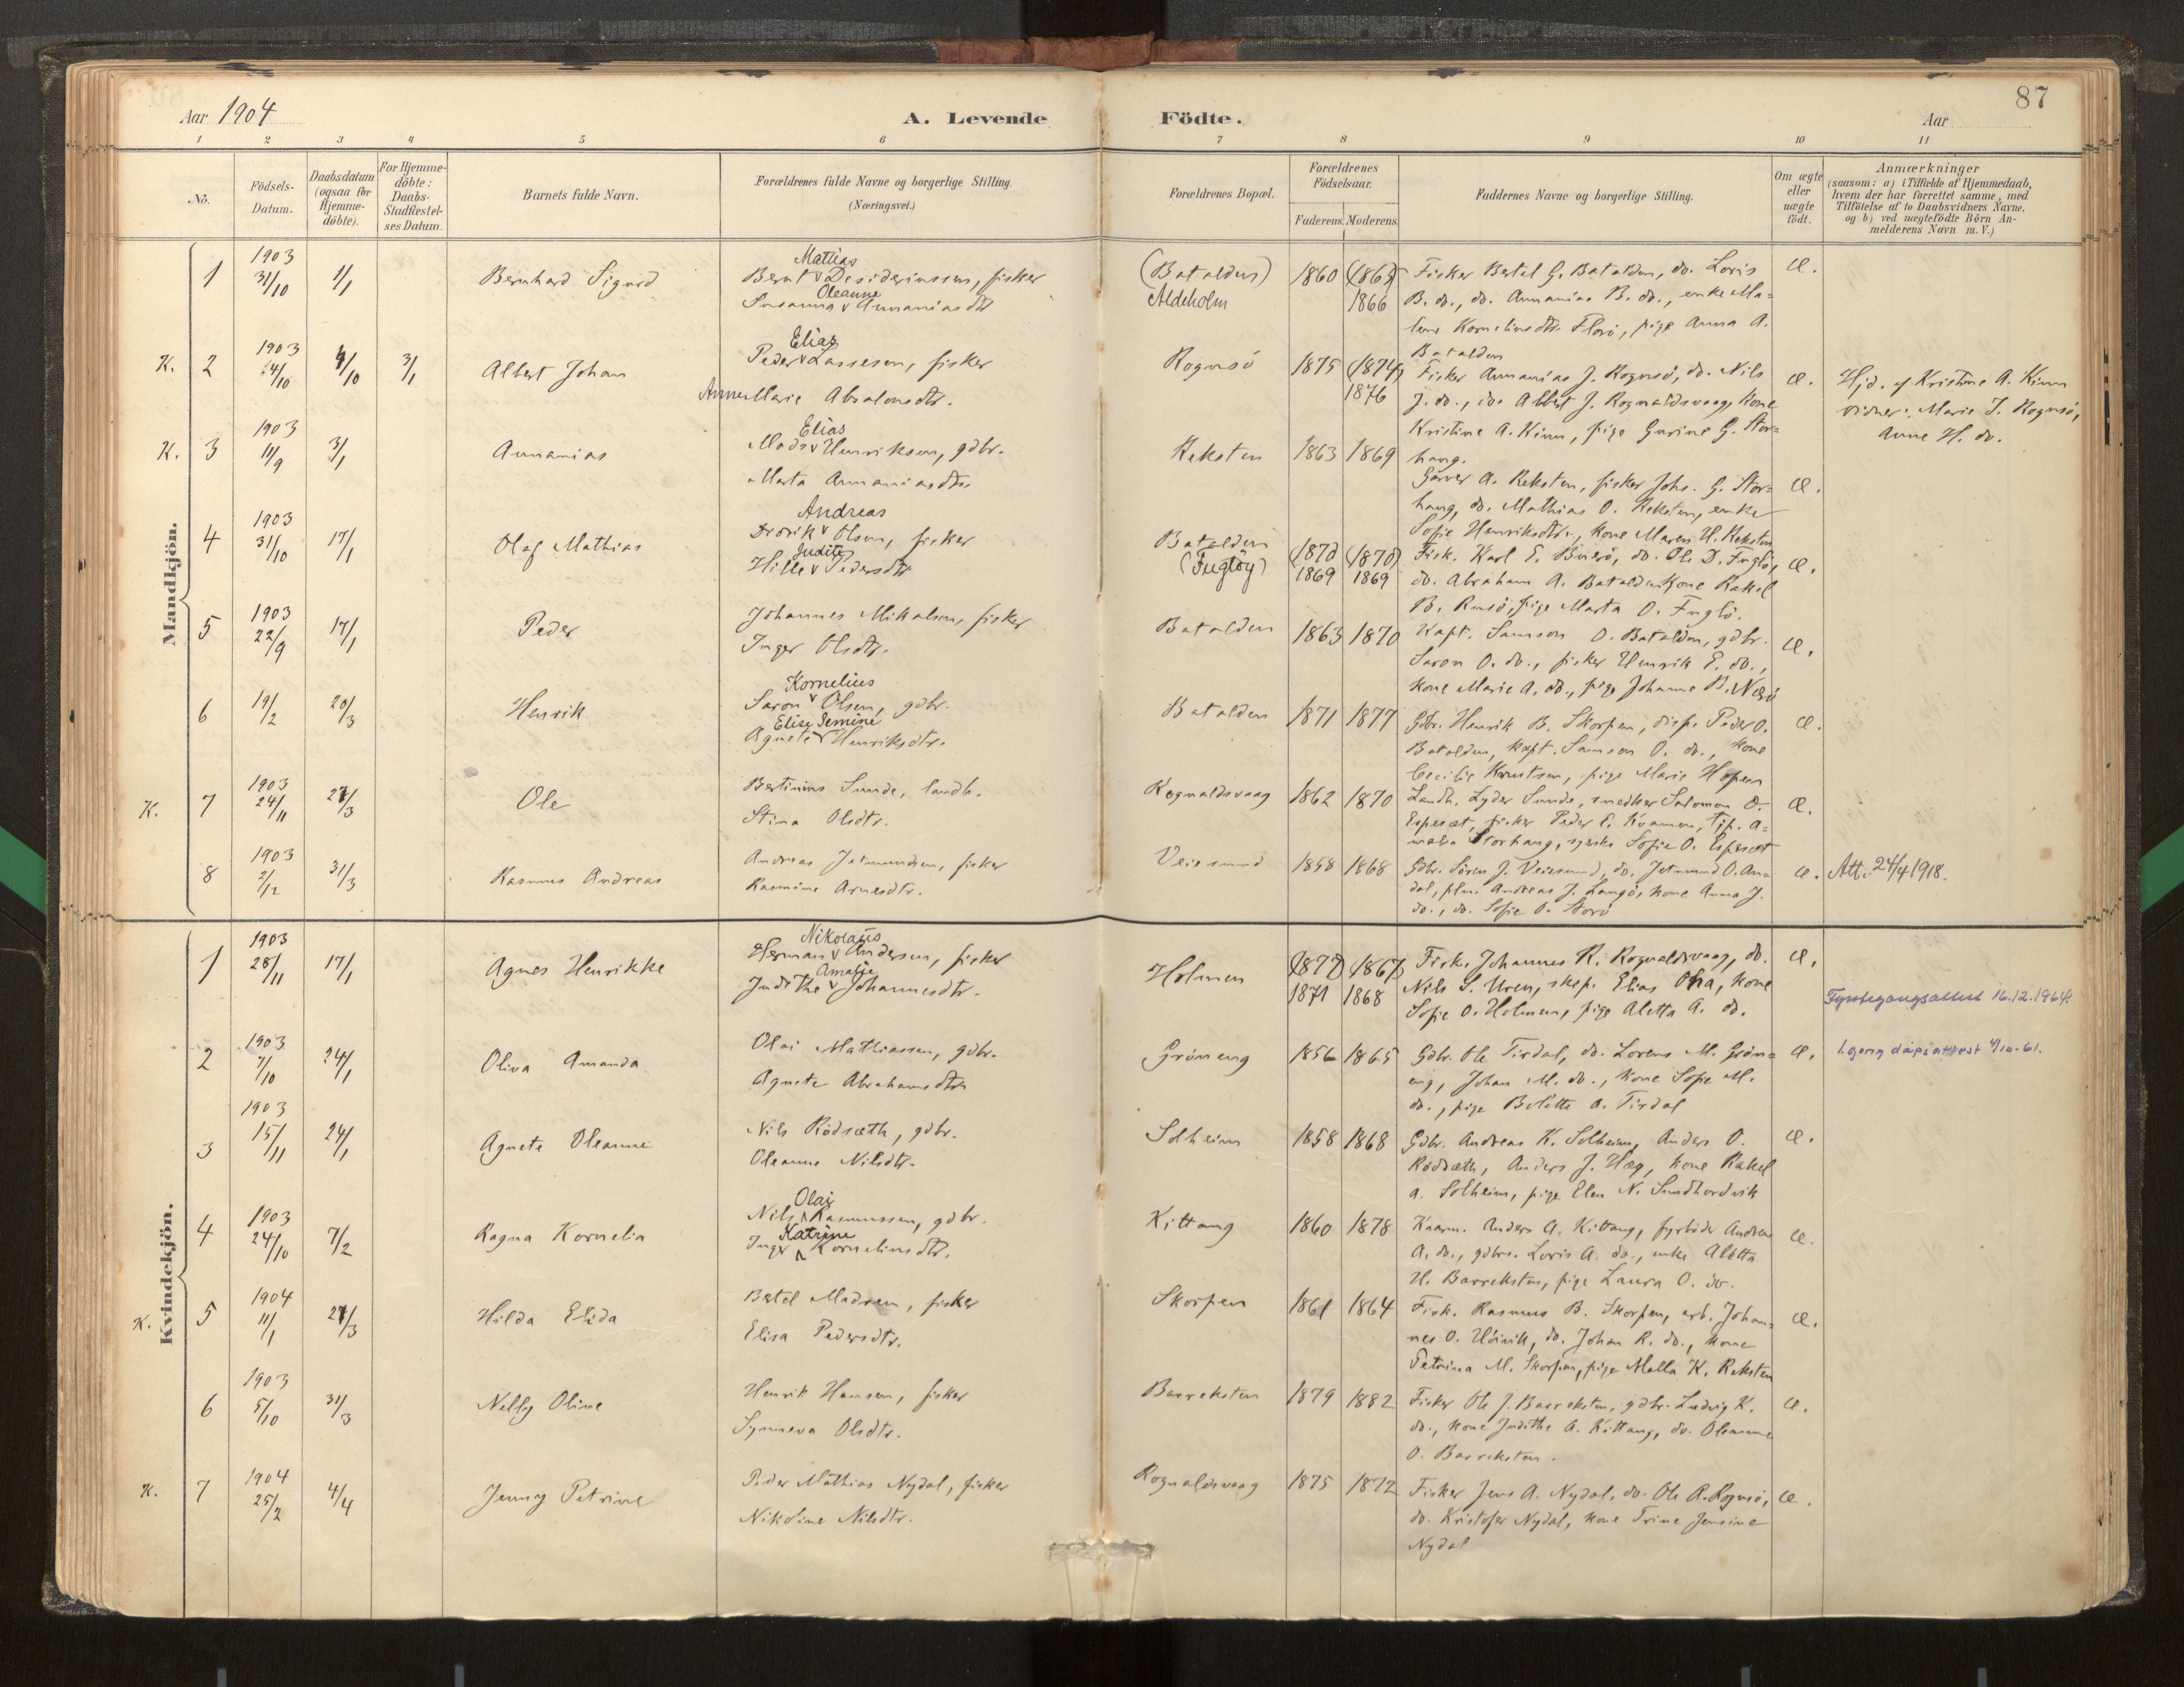 87
Aar 1904
A. Levende Födte.
Aar
1 2 3 4 5 6 7 8 9 10 11
No.
Födsels-Datum.
Daabsdatum (ogsaa for Hjemme-döbte).
For Hjemme-döbte: Daabs-Stadfæstel-ses Datum.
Barnets fulde Navn.
Forældrenes fulde Navne og borgerlige Stilling.
(Næringsvei.)
Forældrenes Bopæl.
Forældrenes Födselsaar.
Faderens. Moderens.
Faddernes Navne og borgerlige Stilling.
Om ægte eller uægte födt.
Anmærkninger
(saasom: a) i Tilfælde af Hjemmedaab,
hvem der har forrettet samme, med
Tilföielse af to Daabsvidners Navne.
og b) ved uægtefödte Börn An-
melderens Navn m. V.)
Mandkjön.
1 1903 31/10 1/1 Bernhard Sigurd
Mathias
Bernt v Desideriussen, fisker
Oleanne
Susanna v Annaniasdtr
(Batalden)
Aldeholm
1860 (1863)
1866
Fisker Bertel G. Batalden, do. Loris
B. do., do. Annanias B. do., enke Ma=
lene Korneliusdtr. Florö, pige Anna A.
Batalden
Æ.
K. 2 1903 4/10 4/10 3/1 Albert Johan
Elias
Peder v Lassesen, fisker
Anne Marie Absalonsdtr.
Rognsö
1875 (1874)
1876
Fisker Annanias J. Rognsö, do. Nils
J. do., do. Albert J. Rognaldsvaag, kone
Kristine A. Kinn, pige Gurine G. Stor=
hang.
Æ.
Hjd. af Kristine A. Kinn
vidner: Marie J. Rognsö,
Anne H. do.
K. 3 1903 11/9 3/1 Annanias
Elias
Mads v Henriksen, gdbr.
Marta Annaniasdtr.
Reksten
1863 1869
Garver A. Reksten, fisker Johs. G. Stor=
hang, do. Mathias O. Reksten, enke
Sofie Henriksdtr., kone Maren H. Reksten
Æ.
4 1903 31/10 17/1 Olaf Mathias
Andreas
Didrik v Olsen, fisker
Judite
Hille v Pedersdtr
Batalden
(Fuglöy)
(1870) (1870)
1869 1869
Fisk. Karl E. Buerö, do. Ole D. Fuglö,
do. Abraham A. Batalden, kone Rakel
B. Ruusö, pige Marta O. Fuglö.
Æ.
5 1903 22/9 17/1 Peder
Johannes Mikalsen, fisker
Inger Olsdtr.
Batalden
1863 1870
Kapt. Samson O. Batalden, gdbr.
Saron O. do., fisker Henrik E. do.,
kone Marie A. do., pige Johanne B. Nærö
Æ.
6 19/2 20/3 Henrik
Kornelius
Saron v Olsen, gdbr.
Elise Jemine
Agnete v Henriksdtr.
Batalden
1871 1877
Gdbr. Henrik B. Skorpen, disp. Peder O.
Batalden, kapt. Samson O. do., kone
Cecilie Knutsen, pige Marie Hopen
Æ.
K. 7 1903 24/11 27/3 Ole
Bertinius Sunde, landh.
Stina Olsdtr.
Rognaldsvaag
1862 1870
Landh. Lyder Sunde, snedker Salomon O.
Espesæt, fisker Peder E. Kvamen, Tjp. A=
malia Storhang, syerske Sofie O. Espesæt
Æ.
8 1903 2/12 31/3 Rasmus Andreas
Andreas Jetmundsen, fisker
Rasmine Arnesdtr.
Veiesund
1858 1868
Gdbr. Sören J. Veiesund, do. Jetmund O. An=
dal, plm. Andreas J. Langö, kone Anna J.
do., do. Sofie O. Storö
Æ.
Att. 24/4 1918.
Kvindekjön.
1 1903 28/11 17/1 Agnes Henrikke
Nikolaus
Herman v Andersen, fisker
Amalie
Judithe v Johannesdtr.
Holmen
(1872) (1867)
1871 1868
Fisk. Johannes R. Rognaldsvaag, do.
Nils S. Uren, skep. Elias Otra, kone
Sofie O. Holmen, pige Aletta A. do.
Æ.
Fyrstegangsattest 16.12.1964.
2 1903 7/10 24/1 Oliva Amanda
Olai Mathiassen, gdbr.
Agnete Abrahamsdtr
Gröneng
1856 1865
Gdbr. Ole Tirdal, do. Lorens M. Grön=
eng, Johan M. do., kone Sofie M.
do., pige Bolette A. Tirdal
Æ.
1. gong dåpsattest 4/10-61.
3 1903 15/11 24/1 Agnete Oleanne
Nils Rödsæth, gdbr.
Oleanne Nilsdtr.
Solheim
1858 1868
Gdbr. Andreas K. Solheim, Anders O.
Rödsæth, Anders J. Hæg, kone Rakel
A. Solheim, pige Elen N. Sundhordvik
Æ.
4 1903 24/10 7/2 Ragna Kornelia
Olai
Nils Rasmussen, gdbr.
Katrine
Inger Korneliusdtr.
Kittang
1860 1878
Kaarm. Anders A. Kittang, fyrböder Andreas
A. do., gdbrs. Loris A. do., enke Aletta
H. Barreksten, pige Laura O. do.
Æ.
K. 5 1904 11/1 27/3 Hilda Elida
Bertel Madsen, fisker
Elisa Pedersdtr.
Skorpen
1861 1864
Fisk. Rasmus B. Skorpen, arb. Johan=
nes O. Höivik, do. Johan R. do., kone
Petrina M. Skorpen, pige Malla K. Reksten
Æ.
6 1903 5/10 31/3 Nelly Oline
Henrik Hansen, fisker
Synneva Olsdtr.
Barreksten
1879 1882
Fisker Ole J. Barreksten, gdbr. Ludvig K.
do., kone Judithe A. Kittang, do. Oleanne
O. Barreksten.
Æ.
K. 7 1904 25/2 4/4 Jenny Petrine
Peder Mathias Nydal, fisker
Nikoline Nilsdtr.
Rognaldsvaag
1875 1872
Fisker Jens A. Nydal, do. Ole R. Rognsö,
do. Kristofer Nydal, kone Trine Jensine
Nydal
Æ.